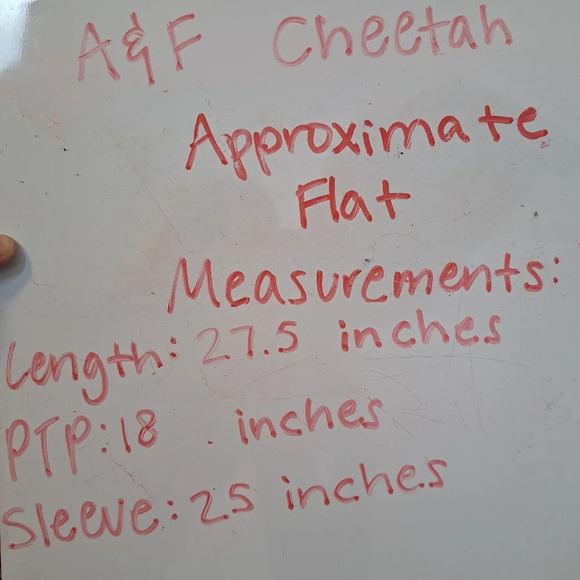 A&F Cheetah
Approximate
Flat
Measurements:
Length: 27.5 inches
PTP: 18 inches
Sleeve: 25 inches